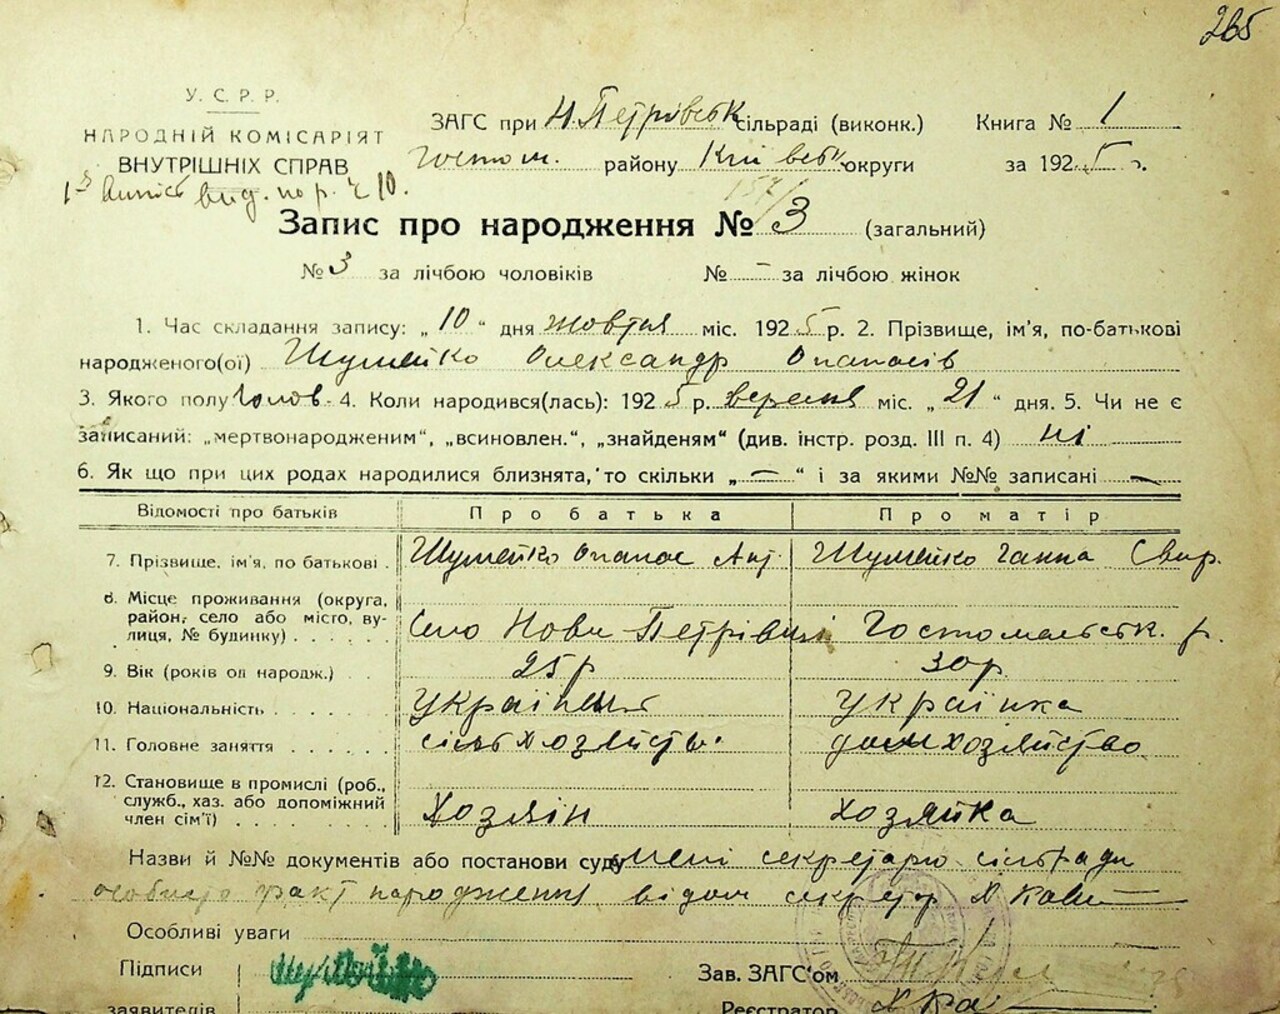 265
У. С. Р. Р.
НАРОДНІЙ КОМІСАРІЯТ
ВНУТРІШНІХ СПРАВ
ЗАГС при Н. Петрівськ сільраді (виконк.) Книга № 1
Гостом. району Київськ округи за 1925 г.
вид. по р. ч 10.
Запис про народження № 3 (загальний)
№ 3 за лічбою чоловіків № – за лічбою жінок
1. Час складання запису: „10“ дня жовтня міс. 1925 р. 2. Прізвище, ім'я, по-батькові
народженого(ої) Шумейко Олександр Опанасів
3. Якого полу чолов. 4. Коли народився(лась): 1925 р. вересня міс. „21“ дня. 5. Чи не є
записаний: „мертвонародженим“, „всиновлен.“, „знайденям“ (див. інстр. розд. III п. 4) ні
6. Як що при цих родах народилися близнята, то скільки „—“ і за якими №№ записані —
Відомості про батьків Про батька Про матір
7. Прізвище, ім'я, по батькові . Шумейко Опанас Ант. Шумейко Ганна Свир.
8. Місце проживання (округа,
район, село або місто, ву-
лиця, № будинку) . . . . . Село Нові Петрівці Гостомельськ. р.
9. Вік (років од народж.) . . 25 р 30 р.
10. Національність . . . . . . українець українка
11. Головне заняття . . . . . . сільхозяйств. домхозяйство
12. Становище в промислі (роб.,
служб., хаз. або допоміжний
член сім'ї) . . . . . . . . Хозяін хозяйка
Назви й №№ документів або постанови суду мені секретарю сільради
особисто факт народження відом секретар
Особливі уваги
Підписи Шумейко Зав. ЗАГС'ом
заявителів Реєстратор